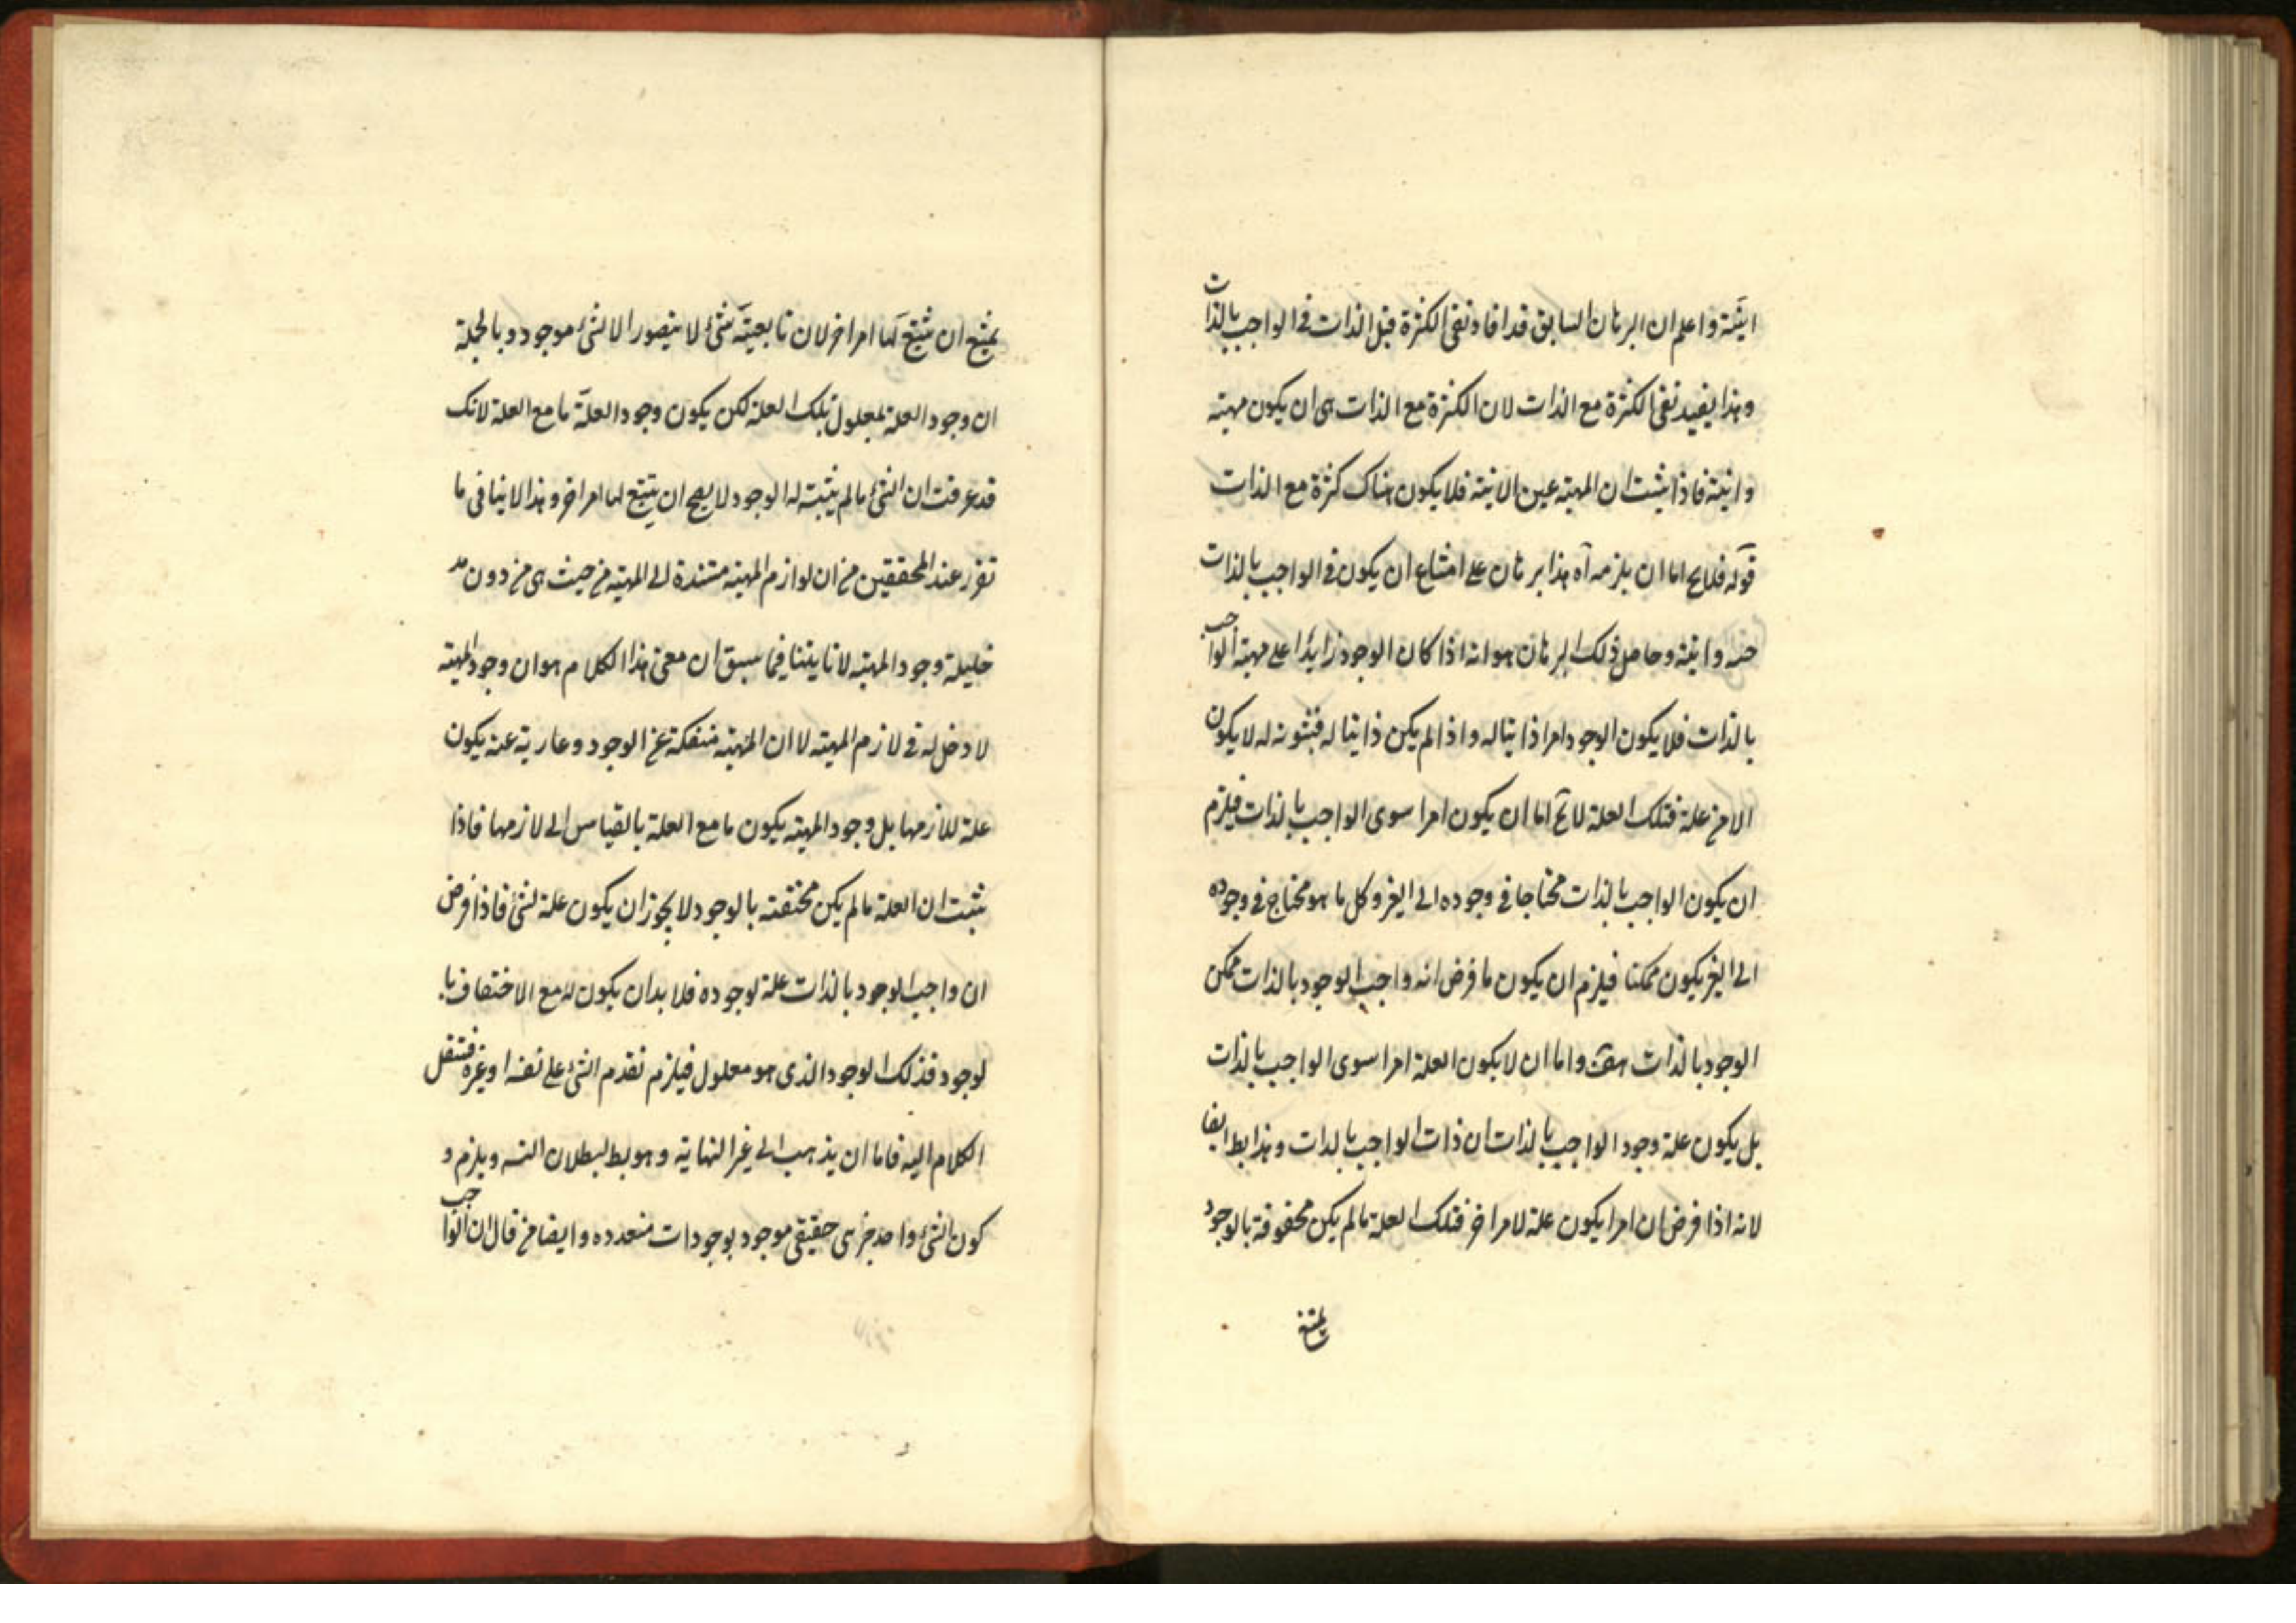 انيّته واعلم ان البرهان السابق قد افاد نفى الكثرة قبل الذات فى الواجب بالذات
وهذا يفيد نفى الكثرة مع الذات لان الكثرة مع الذات هى ان يكون مهيته
وانيته فاذا ثبت ان المهيته عين الانيته فلا يكون هناك كثرة مع الذات
قوله فلا يخ اما ان يلزمه آه هذا برهان على امتناع ان يكون فى الواجب بالذات
وانيته وحاصل ذلك البرهان هو انه اذا كان الوجود زايدا على مهيته الواجب
بالذات فلا يكون الوجود امرا ذاتيا له واذا لم يكن ذاتيا له فثبوته له لا يكون
الا من علة فتلك العلة لا يخ اما ان يكون امرا سوى الواجب بالذات فيلزم
ان يكون الواجب بالذات محتاجا فى وجوده الى الغير وكل ما هو محتاج فى وجوده
الى الغير يكون ممكنا فيلزم ان يكون ما فرض انه واجب الوجود بالذات ممكن
الوجود بالذات هف واما ان لا يكون العلة امرا سوى الواجب بالذات
بل يكون علة وجود الواجب بالذات ان ذات الواجب بالذات وهذا بط ايضا
لانه اذا فرض ان امرا يكون علة لامر اخر فتلك العلة ما لم يكن محفوفة بالوجود
يمتنع
يمتنع ان يتبع لها امر اخر لان تابعيّة شئ لا يتصور الا لشئ موجود وبالجملة
ان وجود العلة لمعلول تلك العلة لكن يكون وجود العلّة ما مع العلة لانك
قد عرفت ان الشئ ما لم يثبت له الوجود لا يصح ان يتبع لها امر اخر وهذا لا ينافى ما
تقرر عند المحققين من ان لوازم المهيته مستندة الى المهيته من حيث هى من دون مد
خليلة وجود المهيته لانا بينا فيما سبق ان معنى هذا الكلام هو ان وجود المهيته
لا دخل له فى لازم المهيته لا ان المهيته منفكة عن الوجود وعارية عنه يكون
علة للازمها بل وجود المهيته يكون ما مع العلة بالقياس الى لازمها فاذا
ثبت ان العلة ما لم يكن بالوجود لا يجوز ان يكون علة لشئ فاذا فرض
ان واجب الوجود بالذات علة لوجوده فلا بد ان يكون له مع با
لوجود فذلك الوجود الذى هو معلول فيلزم تقدم الشئ على نفسه او غيره فننقل
الكلام اليه فاما ان يذهب الى غير النهاية وهو بط لبطلان التسـ ويلزم و
كون الشئ واحد جزى حقيقى موجود بوجودات متعدده وايضا من قال ان الواجب